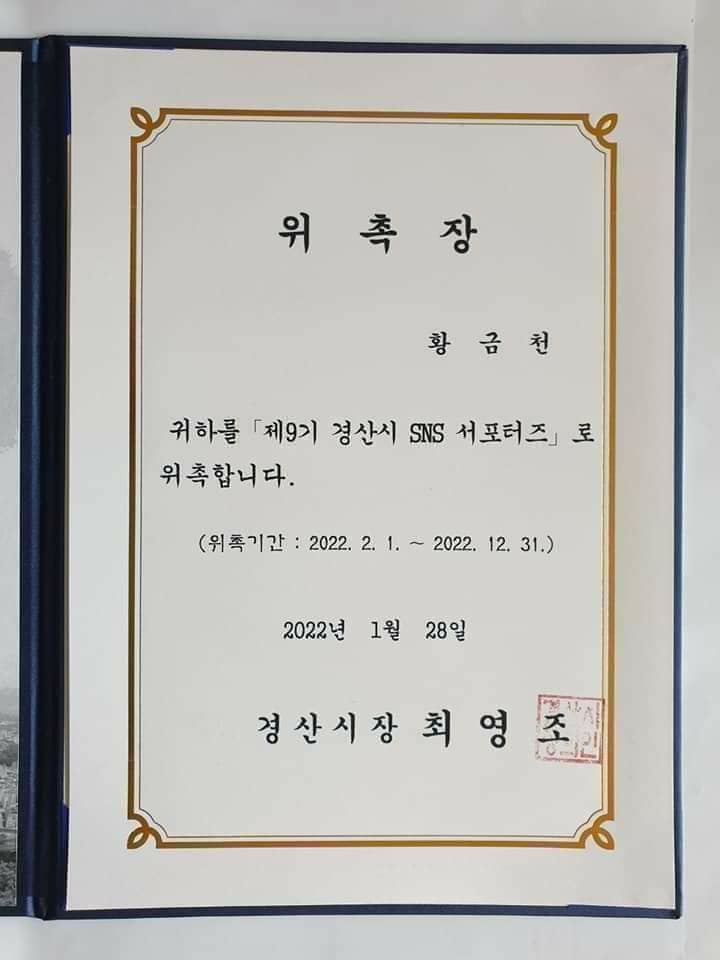 위 촉 장
황 금 천
귀하를 「제9기 경산시 SNS 서포터즈」로
위촉합니다.
(위촉기간 : 2022. 2. 1. ~ 2022. 12. 31.)
2022년 1월 28일
경산시장 최 영 조